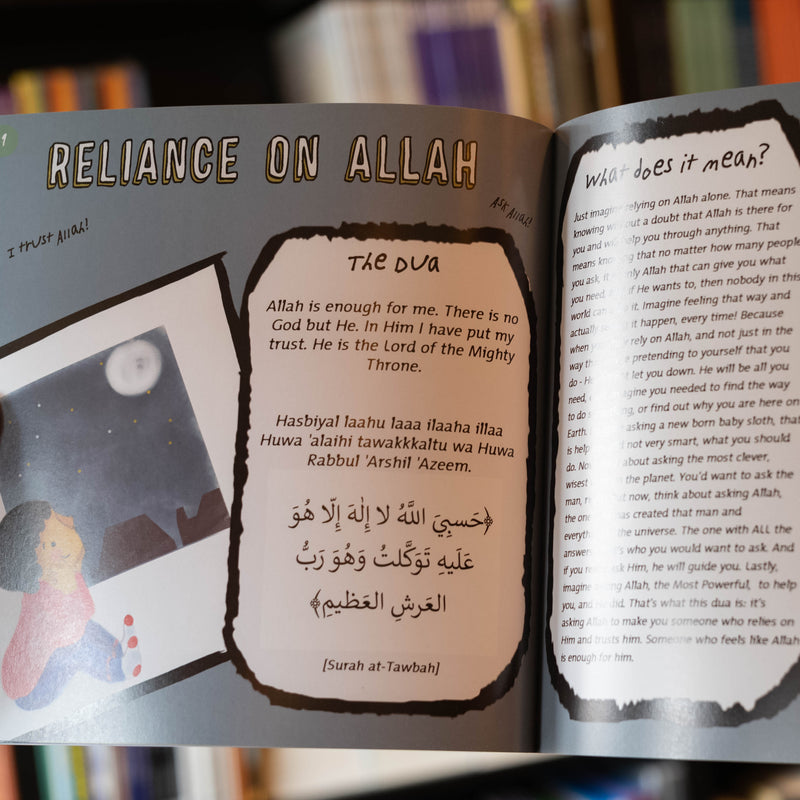 9
RELIANCE ON ALLAH
I trust Allah!
Ask Allah!
The Dua
Allah is enough for me. There is no
God but He. In Him I have put my
trust. He is the Lord of the Mighty
Throne.
Hasbiyal laahu laaa ilaaha illaa
Huwa 'alaihi tawakkkaltu wa Huwa
Rabbul 'Arshil 'Azeem.
﴿حَسبِيَ اللَّهُ لا إِلٰهَ إِلّا هُوَ
عَلَيهِ تَوَكَّلتُ وَهُوَ رَبُّ
العَرشِ العَظيمِ﴾
[Surah at-Tawbah]
What does it mean?
Just imagine relying on Allah alone. That means
knowing without a doubt that Allah is there for
you and will help you through anything. That
means knowing that no matter how many people
you ask, it only Allah that can give you what
you need, if He wants to, then nobody in this
world can it. Imagine feeling that way and
actually it happen, every time! Because
when you rely on Allah, and not just in the
way pretending to yourself that you
do - let you down. He will be all you
need, you needed to find the way
to do or find out why you are here on
Earth. asking a new born baby sloth, that
is help not very smart, what you should
do. about asking the most clever,
wisest the planet. You'd want to ask the
man, now, think about asking Allah,
the one has created that man and
the universe. The one with ALL the
who you would want to ask. And
if you ask Him, he will guide you. Lastly,
imagine Allah, the Most Powerful, to help
you, and did. That's what this dua is: it's
asking Allah to make you someone who relies on
Him and trusts him. Someone who feels like Allah
is enough for him.